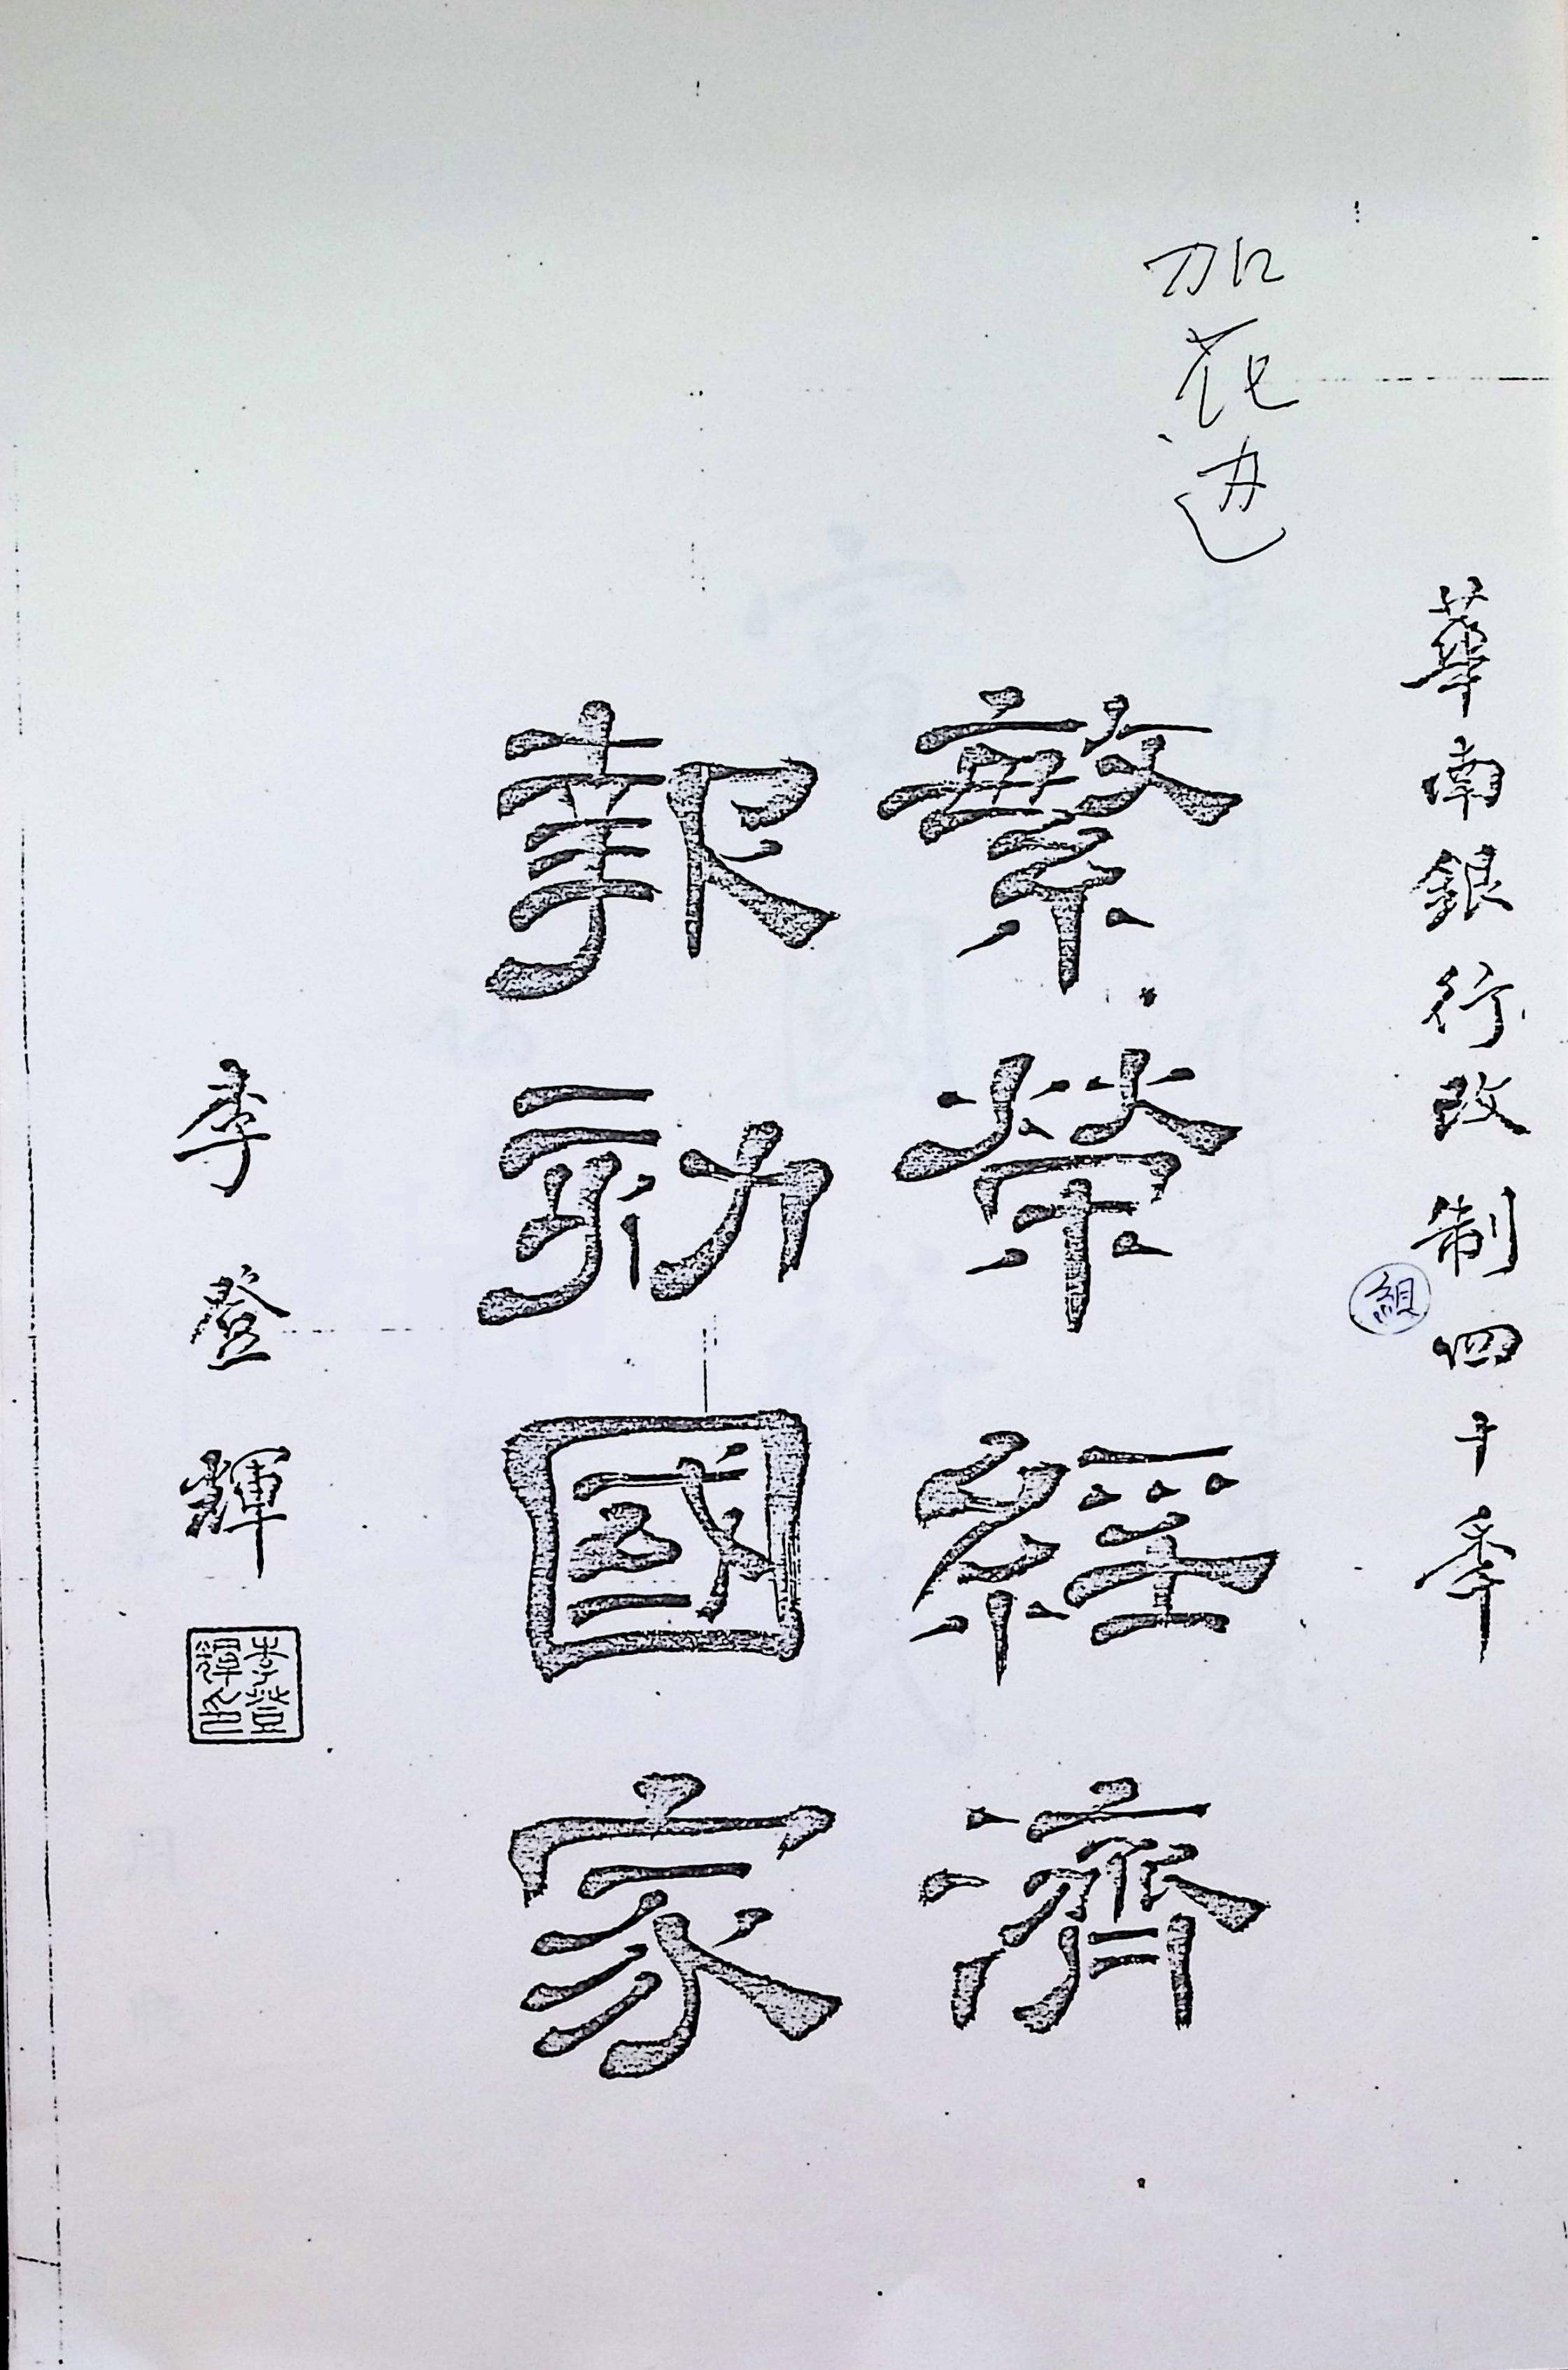 加花边
華南銀行改制四十秊
組
繁榮經濟
報効國家
李登輝
李登輝印